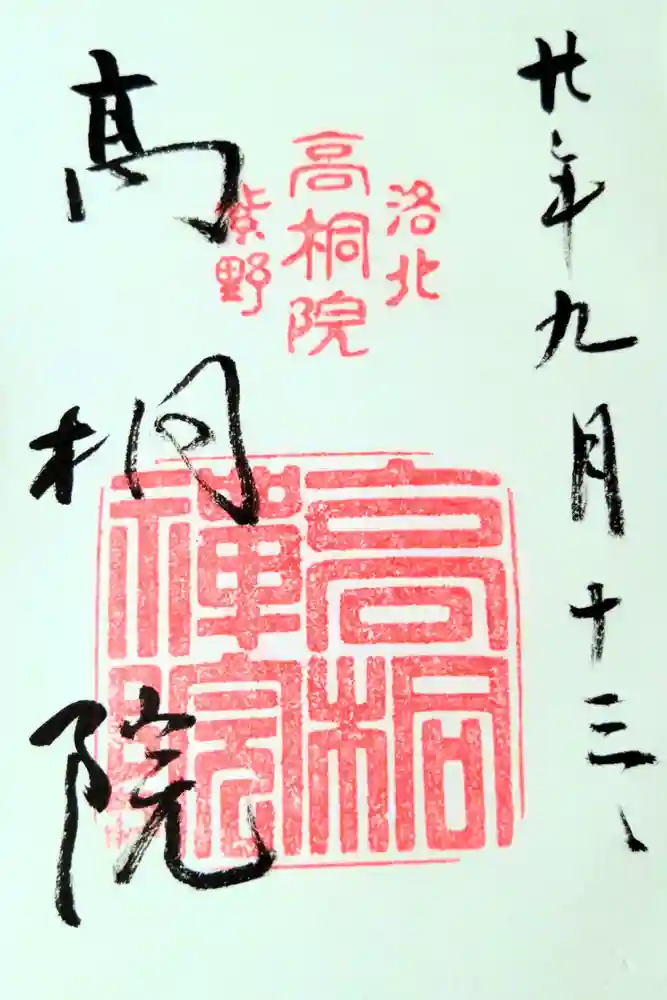 廿年九月十三、
洛北
高桐院
紫野
高桐
禅院
高桐院